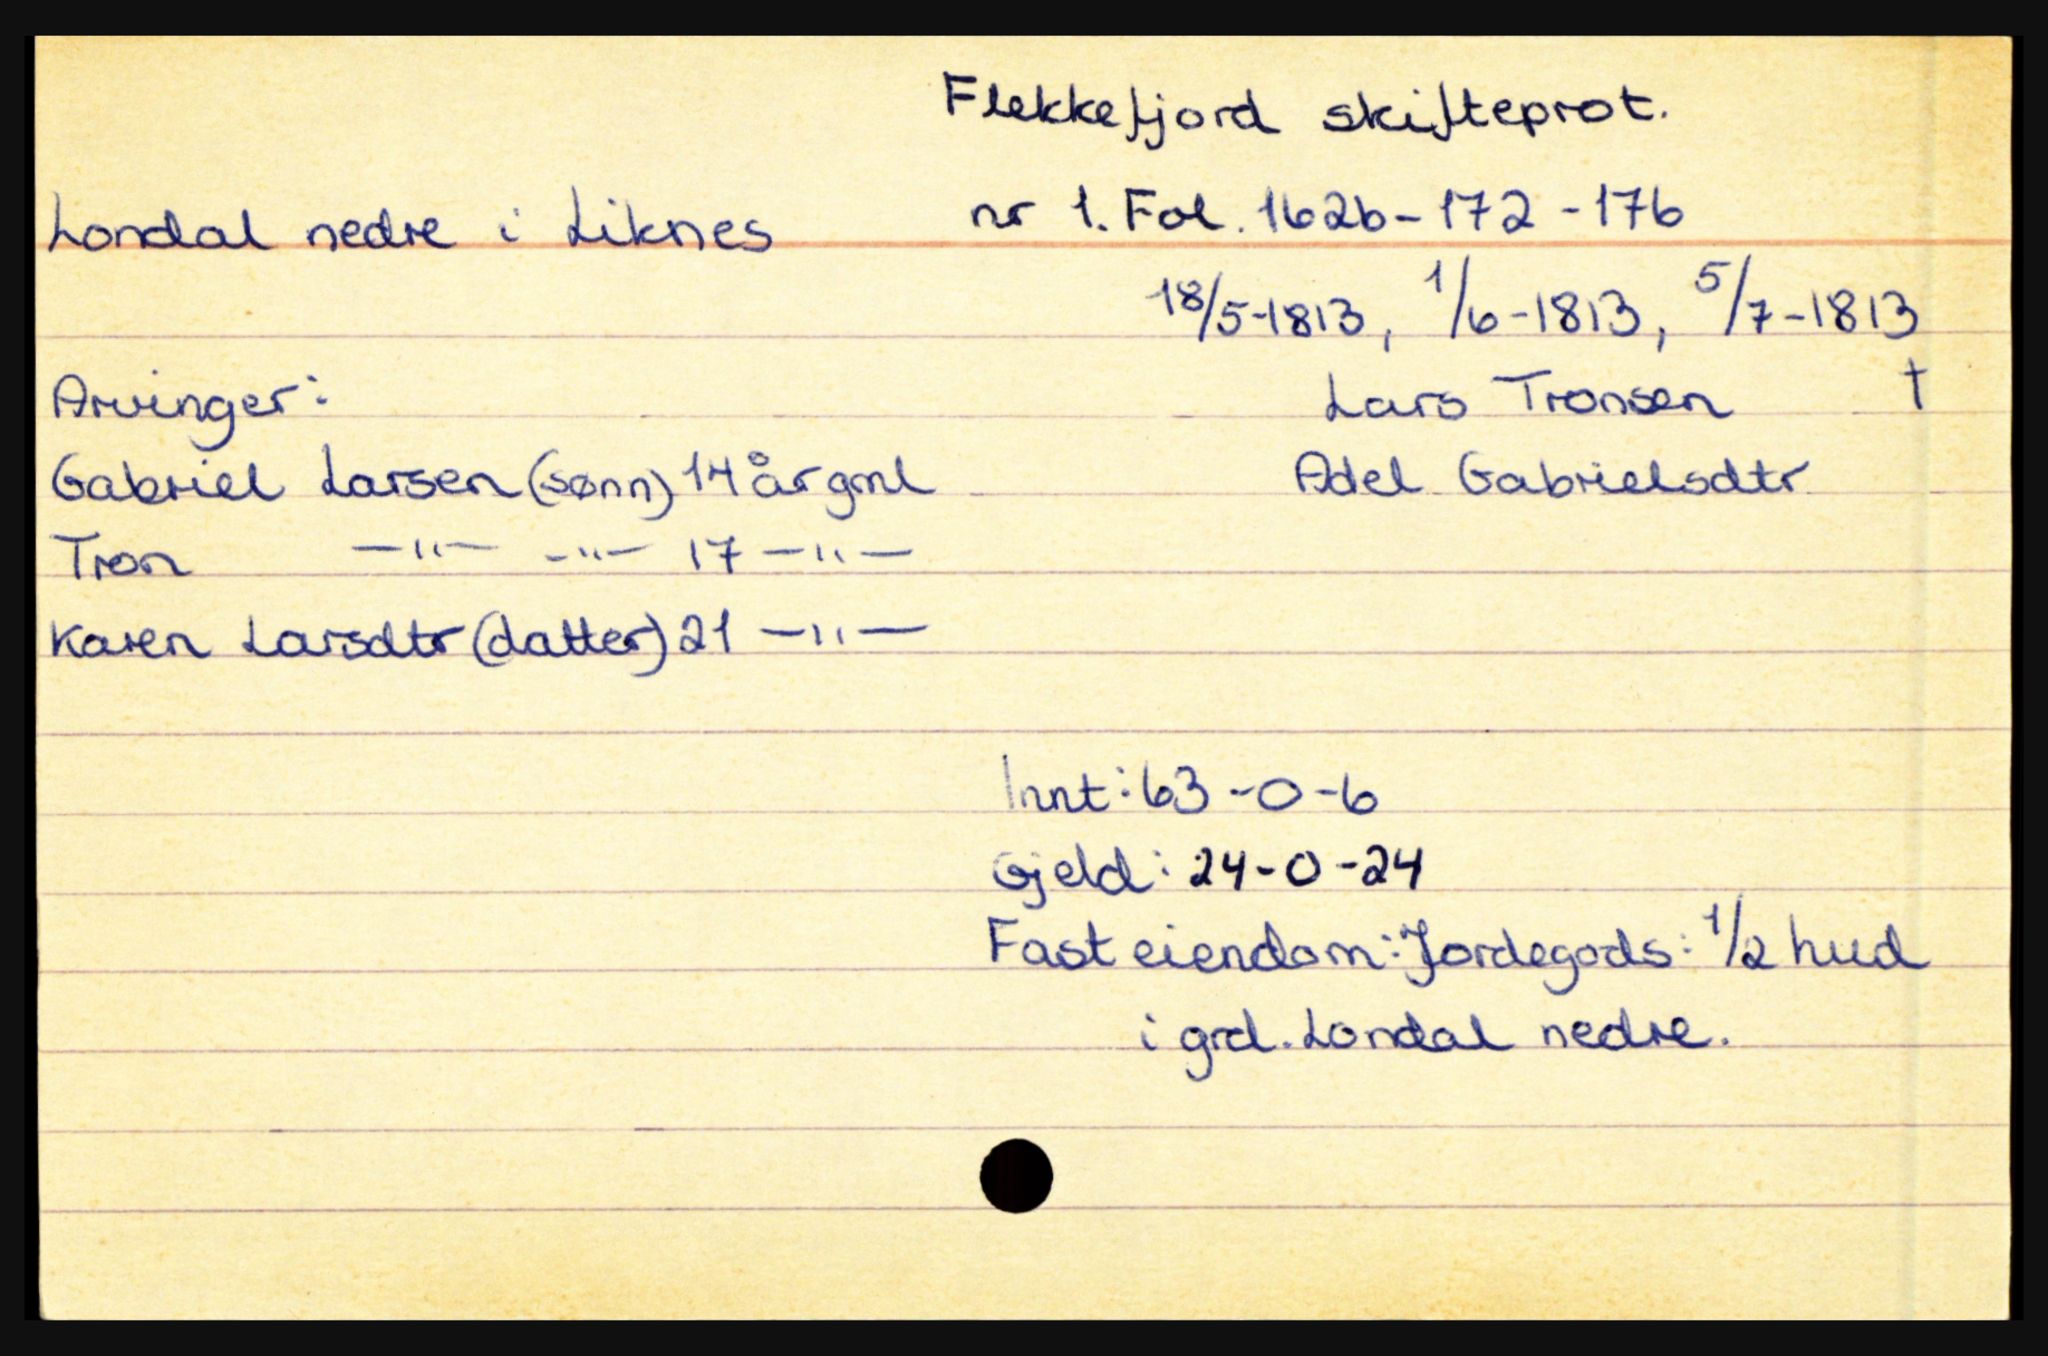 Flekkefjord skifteprot.
Londal nedre i Liknes nr 1. Fol. 162b - 172 - 176
18/5-1813, 1/6-1813, 5/7-1813
Arvinger: Lars Tronsen †
Gabriel Larsen (sønn) 14 år gml Adel Gabrielsdtr
Tron —"— —"— 17 —"—
Karen Larsdtr (datter) 21 —"—
Innt: 63-0-6
Gjeld: 24-0-24
Fast eiendom: Jordegods: 1/2 hud
i grd. Londal nedre.